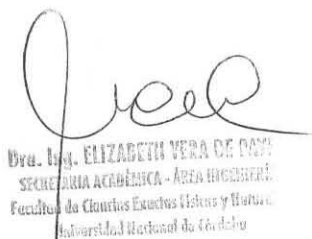 Dra. Ing. ELIZABETH VERA DE
SECRETARIA ACADÉMICA - ÁREA INGENIERÍ
Facultad de Ciencias Exactas Físicas y Natura
Universidad Nacional de Córdoba